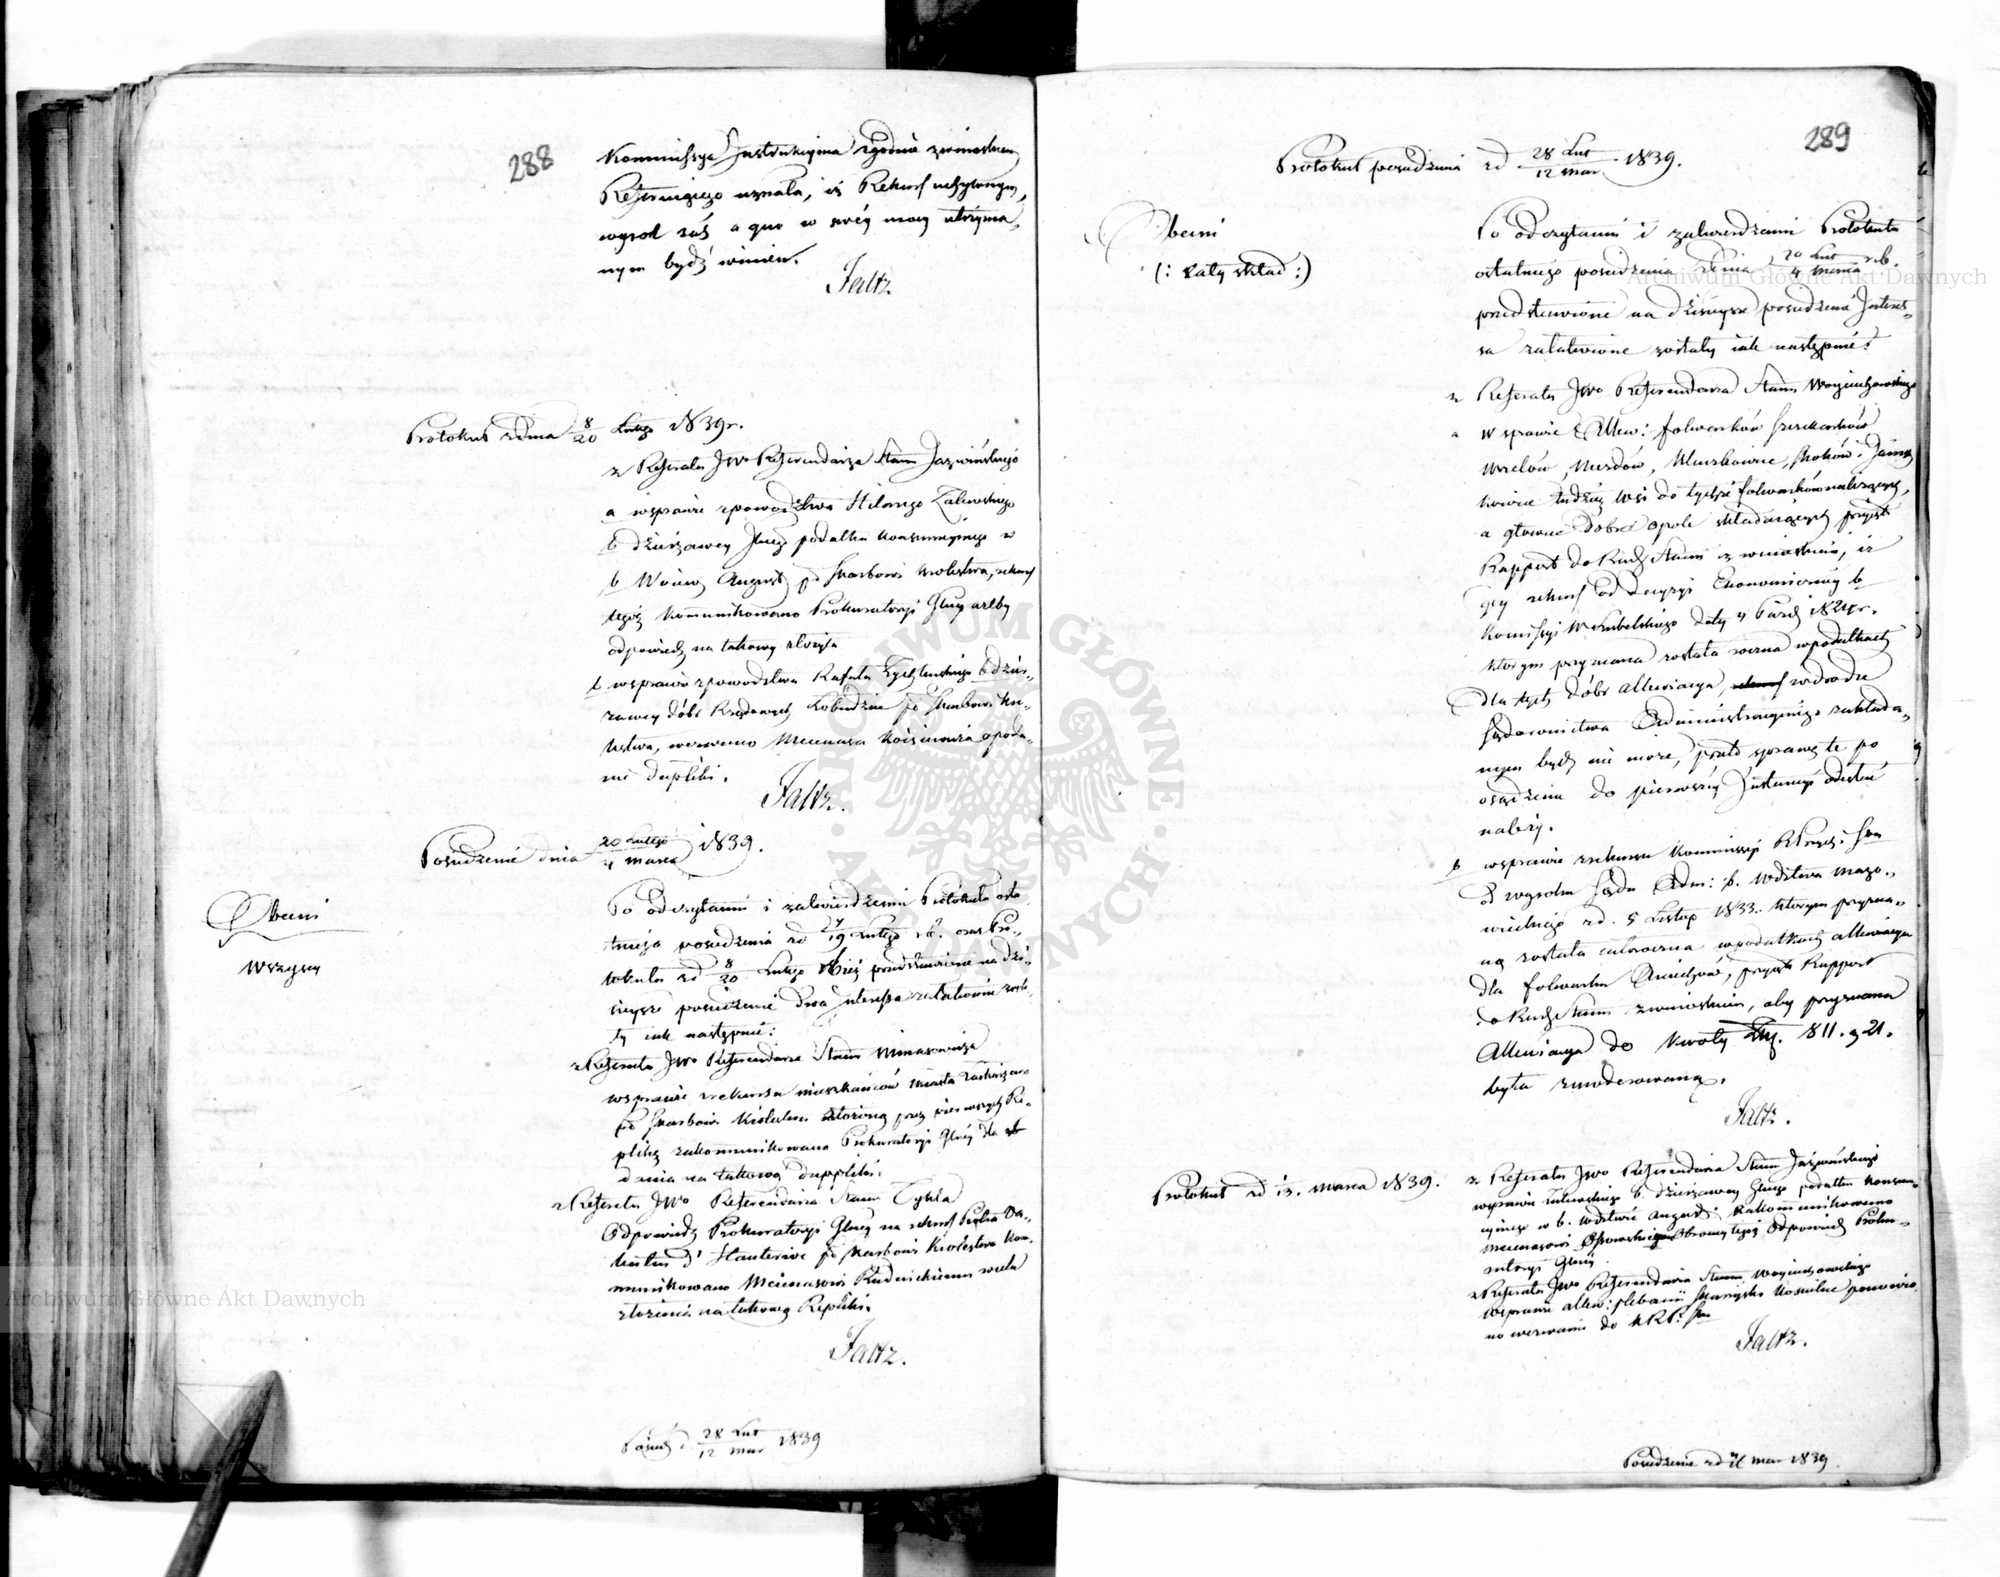 288
Kommissya Instrukcyina zgodnie z wnioskiem
Referuiącego uznała, iż Rekurs uchylonym,
wyrok zaś a quo w swéy mocy utrzyma-
nym bydź winien.
Faltz
Protokuł z dnia 8/20 Lutego 1839 r.
z Referatu JWo Referendarza Stanu Jazwińskiego
a w sprawie z powodztwa Hilarego Zalewskiego
b. dzierżawcy Jlnego podatku konsumcyinego w
b. Woiew. August. po Skarbowi Królestwa, rekurs
tegoż kommunikowano Prokuratoryi Jlney ażeby
odpowiedź na takowy złożyła
b w sprawie z powodztwa Rafała b dzier-
żawcy dóbr Rządowych po Skarbowi Kró-
lestwa, wezwano Mecenasa o poda-
nie dupliki.
Faltz.
Posiedzenie dnia 20 Lutego / 4 Marca 1839.
Obecni
Wszyscy
Po odczytaniu i zatwierdzeniu Protokułu osta-
tniego posiedzenia z d 7/19 Lutego r. b. oraz Pro-
tokułu z d 8/20 Lutego przedstawione na dzi-
sieysze posiedzenie dwa Interessa załatwione zosta-
ły iak następuie:
z Referatu JWo Referendarza Stanu Minasowicza
w sprawie z rekursu mieszkańców miasta
po Skarbowi Królestwa złożoną przez pierwszych Re-
plikę zakommunikowano Prokuratoryi Jlney dla
dania na takową dupliki.
z Referatu JWo Referendarza Stanu Tykla
Odpowiedź Prokuratoryi Jlney na rekurs Piotra
d'Hauterive po Skarbowi Królestwa kom-
munikowano Mecenasowi Rudnickiemu w celu
złożenia na takową Repliki.
Faltz.
Posiedz d. 28 Lut / 12 Mar 1839
289
Protokuł posiedzenia z d 28 Lut / 12 Mar 1839.
Obecni
(: cały skład :)
Po odczytaniu i zatwierdzeniu Protokułu
ostatniego posiedzenia z dnia 20 Lut / 4 Marca r.b.
przedstawione na dzisieysze posiedzenie Interes-
sa załatwione zostały iak następuie:
z Referatu JWo Referendarza Stanu Woyciechowskiego
a w sprawie Allew: folwarków
i
tudzież wsi do tychże folwarków należących,
a główne dobra Opole składaiących przyięto
Rapport do Rady Stanu z wnioskiem, iż
gdy rekurs od decyzyi Ekonomiczney b
Komissyi W Lubelskiego daty 4 Paźdz 1824 r.
którym przyznana została roczna w podatkach
dla tych dóbr allewiacya, w drodze
Sądownictwa Administracyinego zakłada-
nym bydź nie może, przeto sprawę tę po
osądzenie do pierwszéy Instancyi odesłać
należy.
b w sprawie z rekursu Kommissyi R Przych: i Sku
od wyroku Sądu Adm: b. Wdztwa Mazo-
wieckiego z d. 5 Listop 1833. którym przyzna-
ną została całoroczna w podatkach allewiacya
dla folwarku przyięto Rapport
do Rady Stanu z wnioskiem, aby przyznana
Allewiacya do kwoty Złp. 811. g 21.
była zmoderowaną.
Faltz.
Protokuł z d 13. Marca 1839.
z Referatu JWo Referendarza Stanu Jazwińskiego
w sprawie Zalewskiego b. dzierżawcy Jlnego podatku konsum-
cyinego w b. Wdztwie August: zakommunikowano
Mecenasowi Obrońcy tegoż Odpowiedź Proku-
ratoryi Jlney.
z Referatu JWo Referendarza Stanu Woyciechowskiego
w sprawie allew: plebanii ponowio-
no wezwanie do KRP: i Sku
Faltz.
Posiedzenie z d Mar 1839.
Archiwum Główne Akt Dawnych
Archiwum Główne Akt Dawnych
ARCHIWUM GŁÓWNE · AKT DAWNYCH ·